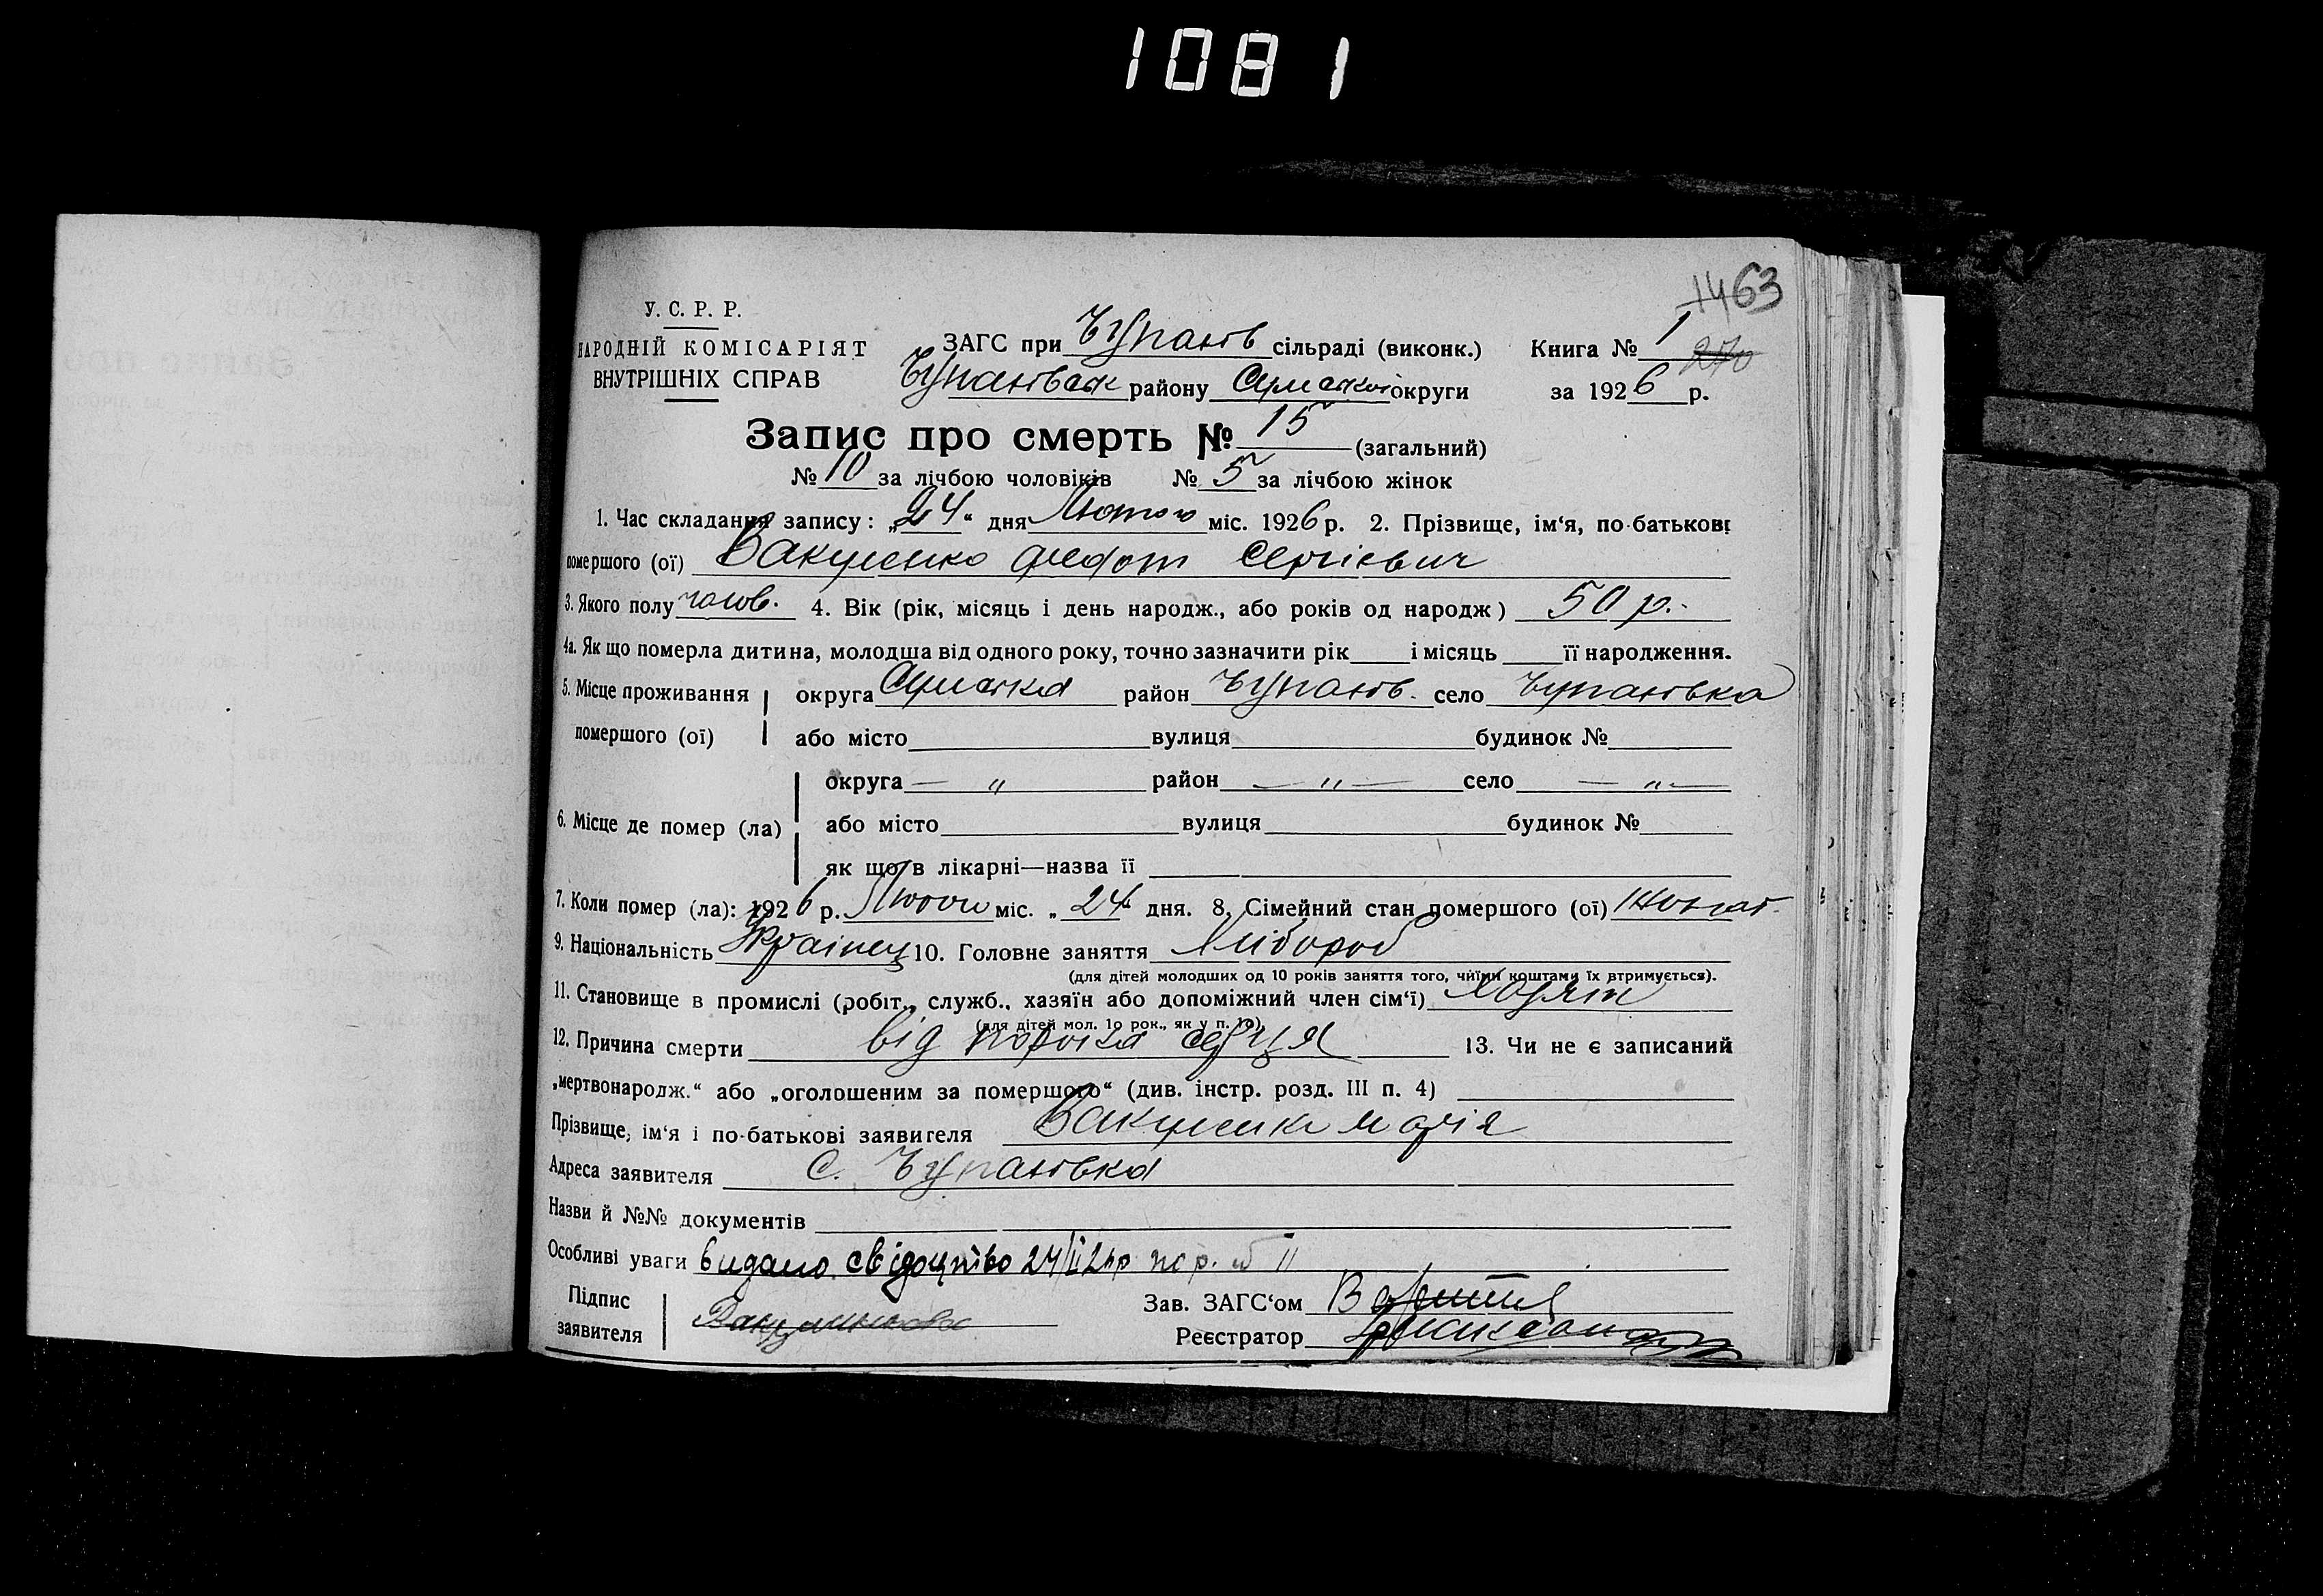 1081
1463
У. С. Р. Р.
НАРОДНІЙ КОМІСАРІЯТ
ВНУТРІШНІХ СПРАВ
ЗАГС при Чупахів сільраді (виконк.) Книга № 1
270
Чупахівськ району Сумської округи за 1926 р.
Запис про смерть № 15 (загальний)
№ 10 за лічбою чоловіків № 5 за лічбою жінок
1. Час складання запису: „24“ дня Лютого міс. 1926 р. 2. Прізвище, ім‘я, по-батькові
помершого (ої) Вакуленко Федот Сергієвич
3. Якого полу чолов. 4. Вік (рік, місяць і день народж., або років од народж) 50 р.
4а. Як що померла дитина, молодша від одного року, точно зазначити рік і місяць її народження.
5. Місце проживання округа Сумська район Чупахів. село Чупахівка
помершого (ої) або місто вулиця будинок №
округа — „ район — „ — село — „ —
6. Місце де помер (ла) або місто вулиця будинок №
як що в лікарні—назва її
7. Коли помер (ла): 1926 р. Лютого міс. „24“ дня. 8. Сімейний стан помершого (ої) Жонат.
9. Національність Українец 10. Головне заняття Хлібороб
(для дітей молодших од 10 років заняття того, чиїми коштами їх втримується).
11. Становище в промислі (робіт., служб., хазяїн або допоміжний член сім‘ї) Хазяїн
(для дітей мол. 10 рок., як у п. 10)
12. Причина смерти від порока серця 13. Чи не є записаний
„мертвонародж.“ або „оголошеним за помершого“ (див. інстр. розд. III п. 4)
Прізвище, ім‘я і по-батькові заявителя Вакуленко Марія
Адреса заявителя С. Чупахівка
Назви й №№ документів
Особливі уваги видано свідоцтво 24/II 26р
Підпис
заявителя
Зав. ЗАГС‘ом
Реєстратор